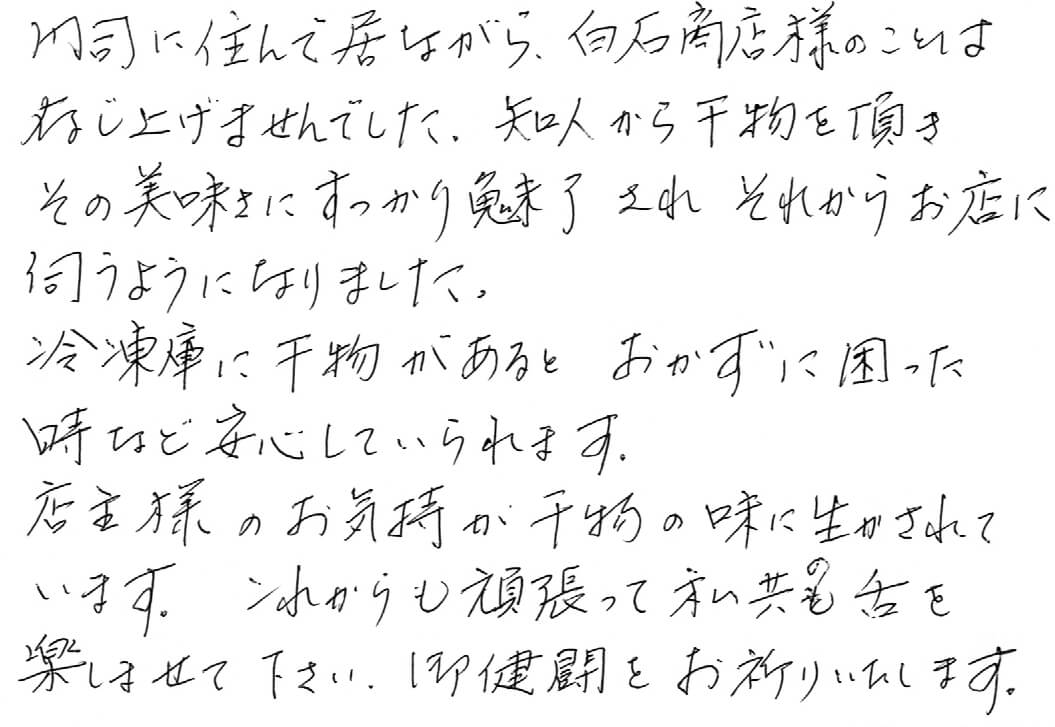 門司に住んで居ながら、白石商店様のことは
存じ上げませんでした。知人から干物を頂き
その美味さにすっかり魅了され それからお店に
伺うようになりました。
冷凍庫に干物があると おかずに困った
時など安心していられます。
店主様のお気持が干物の味に生かされて
います。 これからも頑張って私共の舌を
楽しませて下さい。御健闘をお祈りいたします。